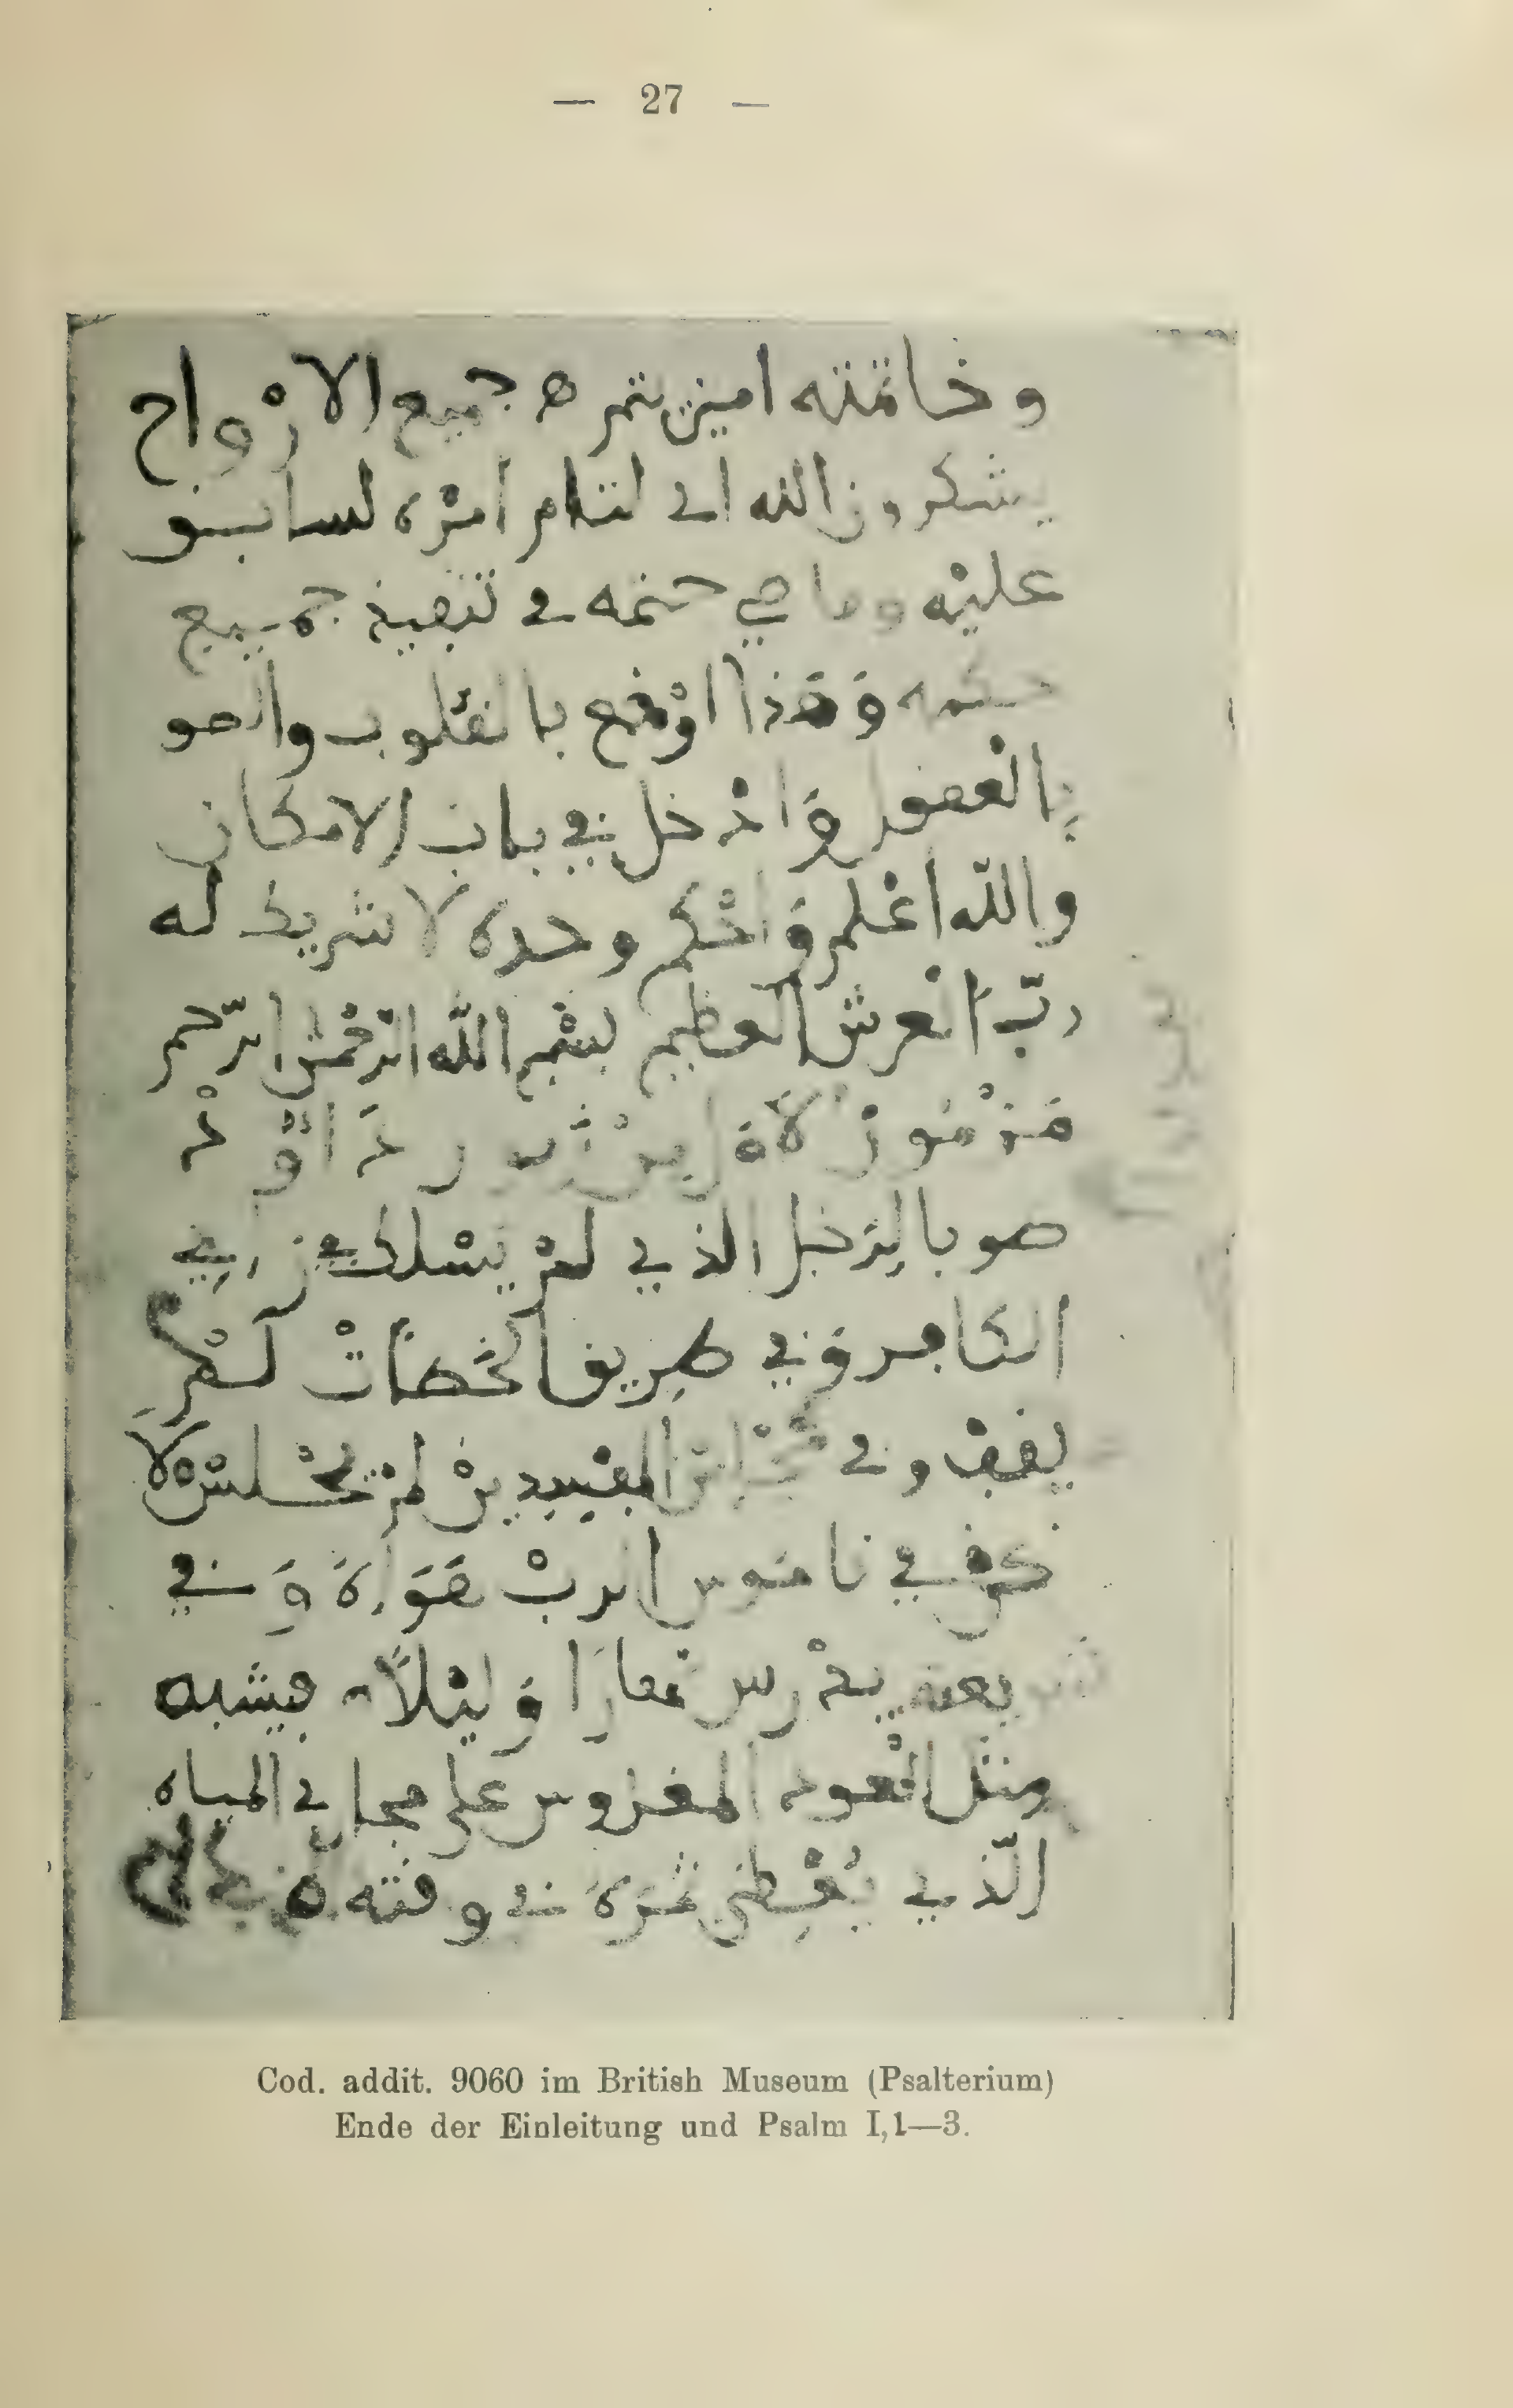 — 27 —
وخاتمته امين ثم جميع الارْواح
يشكرون الله الى امْره لسابق
عليْه وما هي في جميع
حكمه وَهَذا اوْضح بالقلوب والحو
بالْعقول وَادْخل في باب الامكان
والله اعْلم وَاحْكم وحده لا شريك له
ربّ الْعرش العظيم بسْم الله الرّحْمن الرّحيم
مَزْمُورْ لاوَل دَاوْدْ
طوبا لِلرَجل الذي لمْ يسْلك في رَايِ
وَفي طرِيق لمْ
يقفْ وفي المفسِدِينْ لمْ يجْلسْ لا
كنْ في نامُوس الربْ هَوَاهَ وَفي
يدْرس نهارَا وَليْلاً فيشبه
مثْل الْعود المغروس على مجاري المياه
الّذي يُعْطِي ثمَرَهَ في وقته
Cod. addit. 9060 im British Museum (Psalterium)
Ende der Einleitung und Psalm I,1—3.